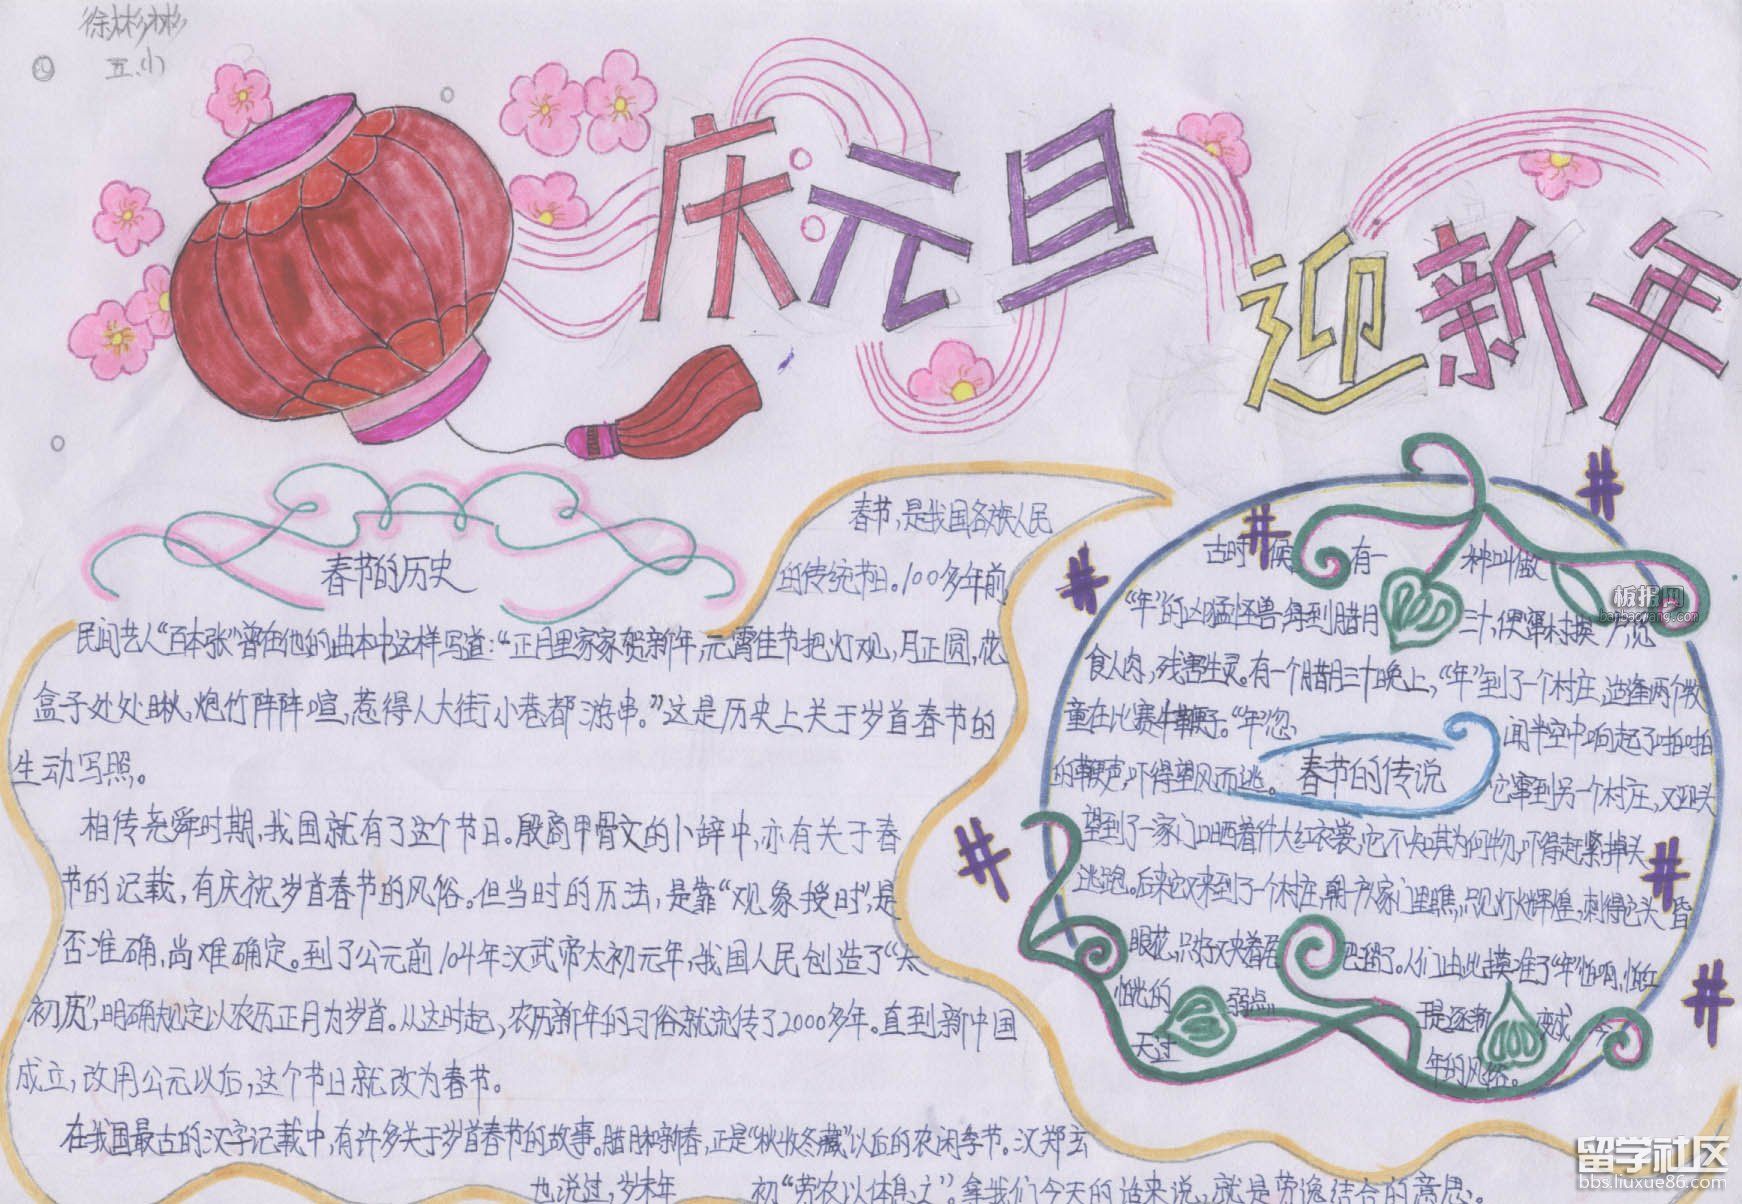 徐彬彬
五.小
庆元旦
迎新年
春节的历史
春节,是我国各族人民
的传统节日。100多年前
民间艺人“百本张”曾在他的曲本中这样写道:“正月里家家贺新年,元宵佳节把灯观,月正圆,花
盒子处处瞅,炮竹阵阵喧,惹得人大街小巷都游串。”这是历史上关于岁首春节的
生动写照。
相传尧舜时期,我国就有了这个节日。殷商甲骨文的卜辞中,亦有关于春
节的记载,有庆祝岁首春节的风俗。但当时的历法,是靠“观象授时”,是
否准确,尚难确定。到了公元前104年汉武帝太初元年,我国人民创造了“太
初历”,明确规定以农历正月为岁首。从这时起,农历新年的习俗就流传了2000多年。直到新中国
成立,改用公元以后,这个节日就改为春节。
在我国最古的汉字记载中,有许多关于岁首春节的故事。腊月和新春,正是“秋收冬藏”以后的农闲季节。汉郑玄
也说过,岁末年初“劳农以休息之”。拿我们今天的话来说,就是劳逸结合的意思。
古时候有一种叫做
“年”的凶猛怪兽,每到腊月三十,便窜村挨户,觅
食人肉,残害生灵。有一个腊月三十晚上,“年”到了一个村庄,适逢两个牧
童在比赛牛鞭子。“年”忽闻半空中响起了啪啪
的鞭声,吓得望风而逃。它窜到另一个村庄,又迎头
春节的传说
望到了一家门口晒着件大红衣裳,它不知其为何物,吓得赶紧掉头
逃跑。后来它又来到了一个村庄,朝一户家门里瞧,只见灯火辉煌,刺得它头昏
眼花,只好又夹着尾巴溜了。人们由此摸准了“年”怕响,怕红
怕光的弱点
于是逐渐变成今
天过年的风俗。
板报网
banbaowang.com
留学社区
bbs.liuxue86.com